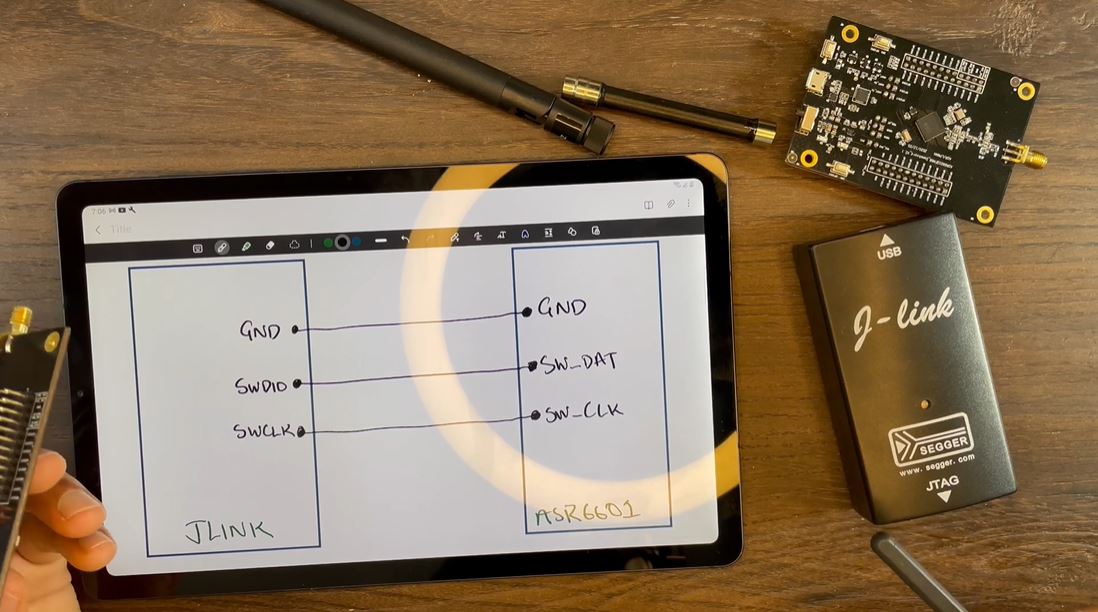 7:06
Title
GND
SWDIO
SWCLK
JLINK
GND
SW_DAT
SW_CLK
ASR6601
USB
J-link
SEGGER
www.segger.com
JTAG